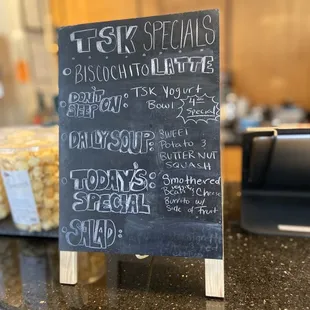 TSK SPECIALS
BISCOCHITO LATTE
DON'T SLEEP ON:
TSK Yogurt
Bowl
Special
DAILY SOUP:
SWEET
Potato &
BUTTERNUT
SQUASH
TODAY'S
SPECIAL
Smothered
Veggie
Bean & Cheese
Burrito w/
Side of Fruit
SALAD: